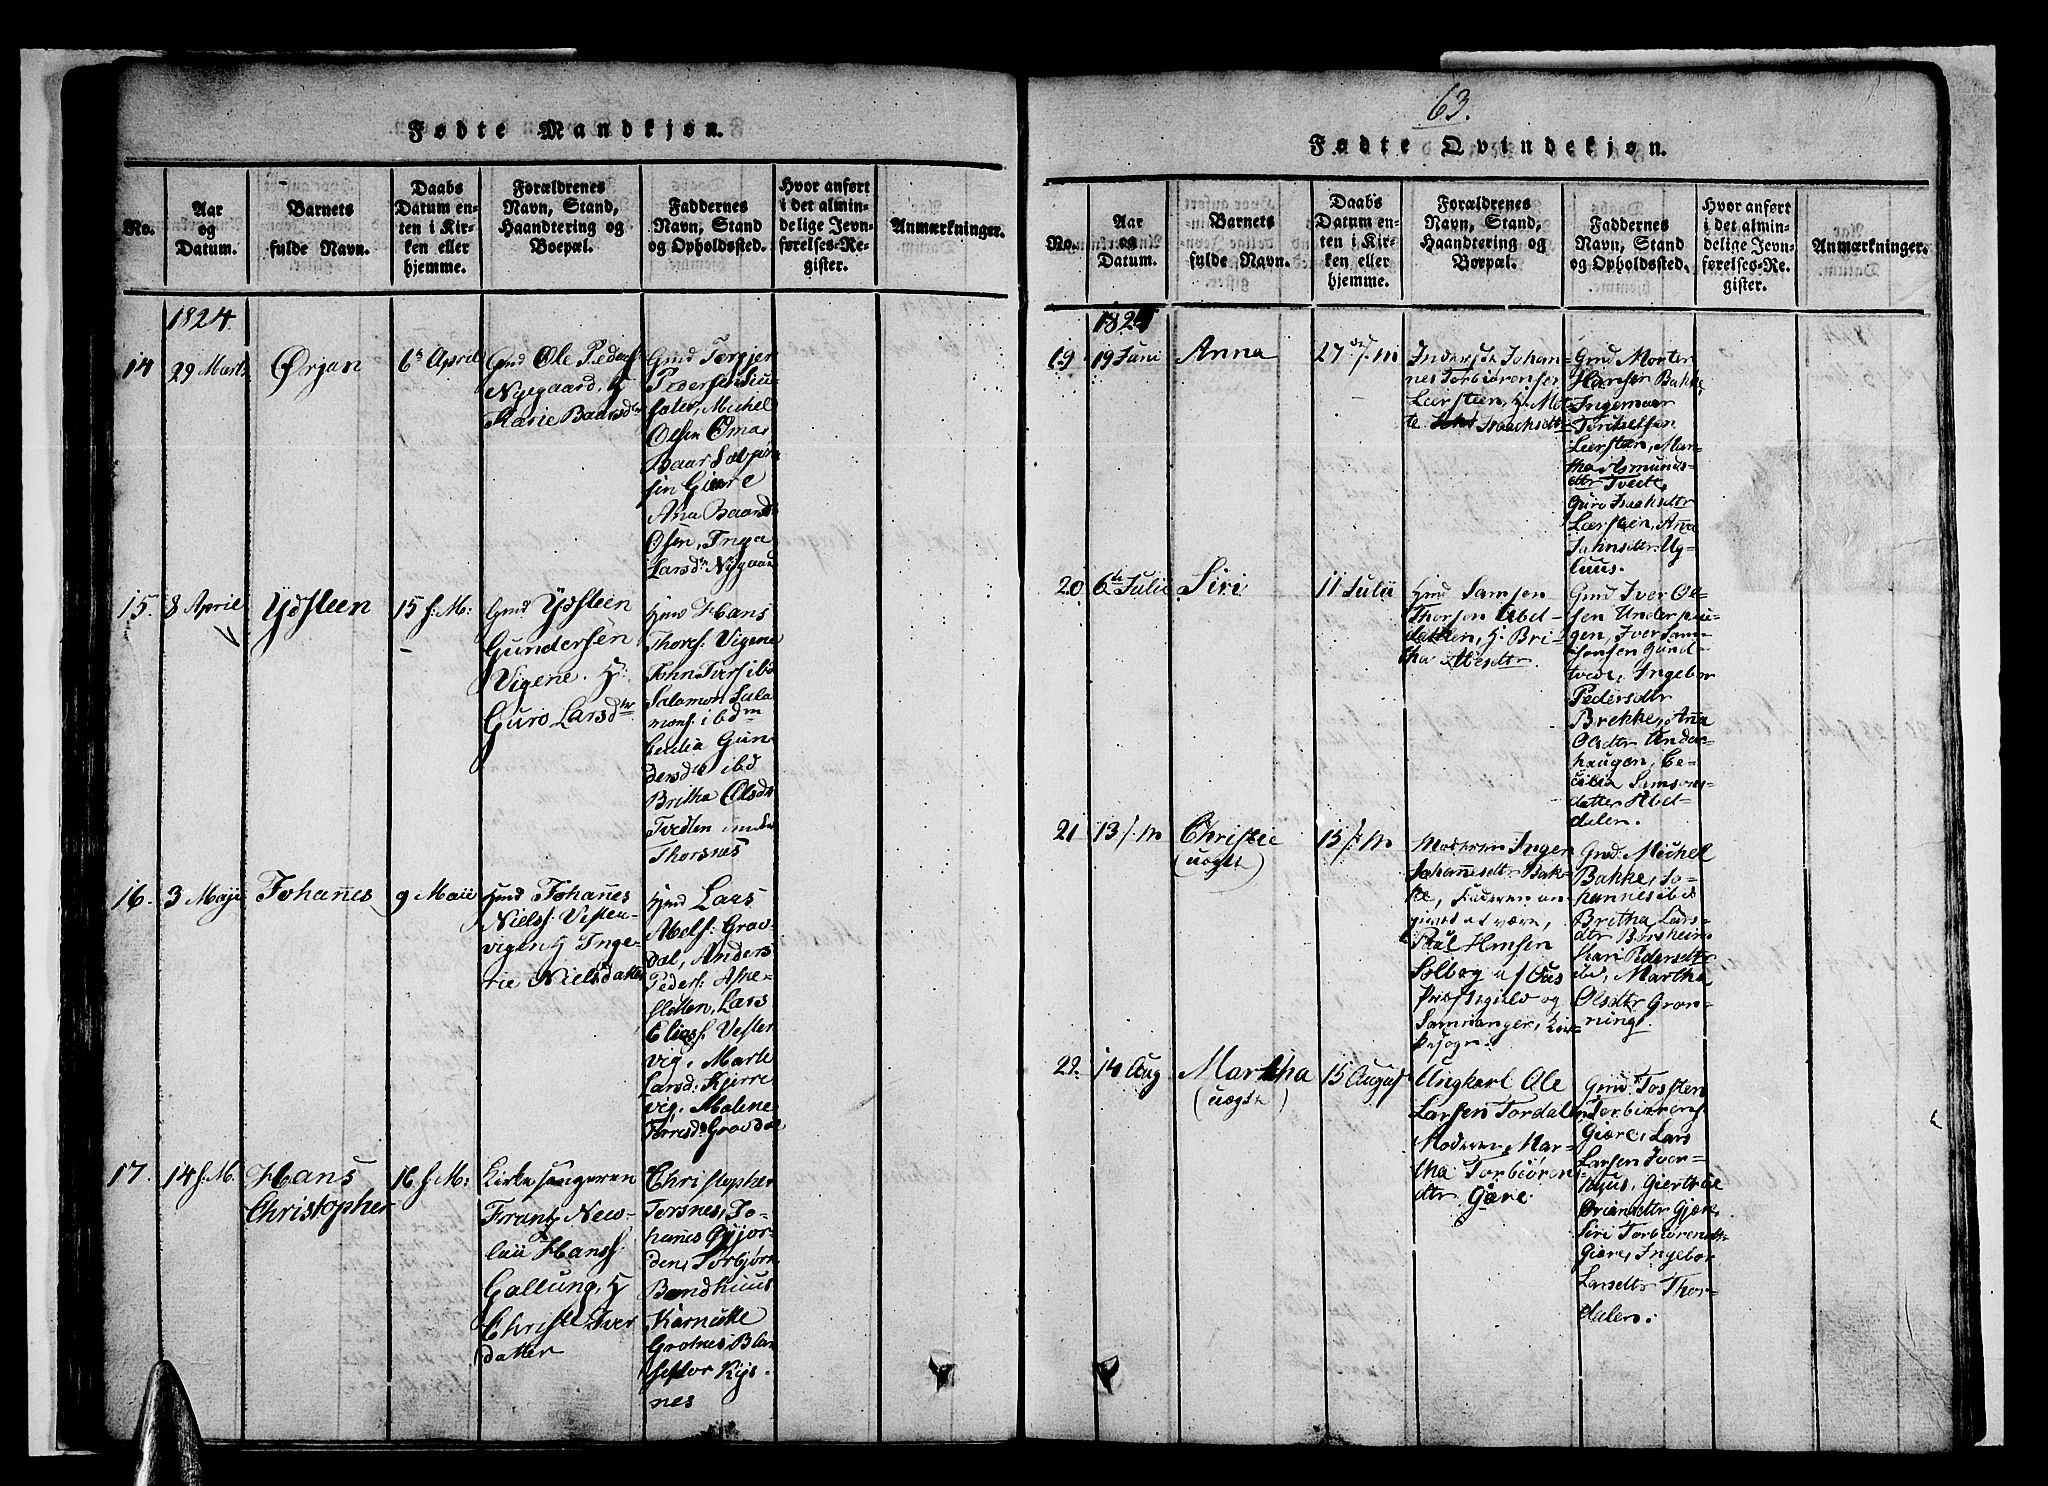 Fødte Mandkjøn.
No.
Aar
og
Datum.
Barnets
fulde Navn.
Daabs
Datum en-
ten i Kir-
ken eller
hjemme.
Forældrenes
Navn, Stand,
Haandtering og
Boepæl.
Faddernes
Navn, Stand
og Opholdssted.
Hvor anført
i det almin-
delige Jevn-
førelses-Re-
gister.
Anmærkninger.
1824
14
29 Marts
Ørjan
6 April
Gmd Ole Peders
Nyegaard, H
Karie Baarsdtr
Gmd Torgjer
Pedersen
sæter, Michel
Olsen Oma
Baar
sen Gierre
Ana Baarsdr
Osen, Inga
Larsdr Nygaard
15.
8 April
Ydsteen
15 s: M:
Gmd Ydsteen
Gundersen
Vigene. H:
Guro Larsdtr
Gmd Hans
Thores: Vigene
John Ivers ibd
Salamon Sala
mons. ibdm
Cecilia Gun
dersdtr ibd
Britha Olsdr
Tvedten
Thorsnes
16.
3 Maji
Johanes
9 Maii
Gmd Johanes
Niels: Vesten-
vigen H Inge-
rie Nielsdatter
Gmd Lars
Abels: Grav-
dal, Anders
Peders: Axle-
sletten, Lars
Elias: Vesten
vig, Marte
Larsd: Kjerre
vig, Malene
Gravdal
17.
14 s. M.
Hans
Christopher
16 s: M:
Kirkesangeren
Frantz New-
Hans:
Gallung, H
Christe Iver
datter
Christopher
Torsnes, Jo-
hanes Gjor-
den, Torbjørn
Bondhuus
Grotnes
nes
63.
Fødte Qvindekjøn.
No.
Aar
og
Datum.
Barnets
fulde Navn.
Daabs
Datum en-
ten i Kir-
ken eller
hjemme.
Forældrenes
Navn, Stand,
Haandtering og
Boepæl.
Faddernes
Navn, Stand
og Opholdssted.
Hvor anført
i det almin-
delige Jevn-
førelses-Re-
gister.
Anmærkninger.
1824
19
19 Juni
Anna
27 de s. m
Inderste Johan-
nes Torbiørensen
Leersteen, H. Me-
te Isachsdtr
Gmd Morten
Hansen Bakke,
Ingemaer
Torkelsen
Leersteen, Mar-
tha Asmunds-
dtr Tveite,
Guro Isachsdtr
Leersteen, Ana
Johnsdtr Ug-
luus.
20
6te Julii
Siri
11 Julii
Gmd Samson
Thorsen Abel-
dahlen, H. Bri-
tha Abesdtr.
Gmd Iver Ol-
sen Underhou-
gen, Iver Sam-
sonsen Gund-
vede, Ingebor
Pedersdtr
Brekke, Ana
Olsdtr Under-
haugen, Ce-
cilia Samsons-
datter Abel-
dalen.
21
13 s. m
Christie
(uægte)
15 s. m
Moderen Inger
Johannesdtr Bak-
ke, Faderen an-
gives at være,
Paul Hansen
Solberg af Ous
Præstegield og
Samnanger, Kir-
kesogn.
Gmd. Michel
Bakke, Jo-
hannes ibd
Britha Lars-
dtr Børsheim
Kari Pedersdtr
ibd, Martha
Olsdtr Grøn-
ning.
22.
14 Aug
Martha
(uægte)
15 August
Ungkarl Ole
Larsen Tordal
Moderen, Mar-
tha Torbiørens-
dtr Giære
Gmd Tosten
Torbiørens
Giære, Lars
Larsen Iver-
huus, Giertrue
Øriansdtr Gjære
Siri Torbiørensdtr
Giære, Ingebor
Larsdtr Thor-
dalen.